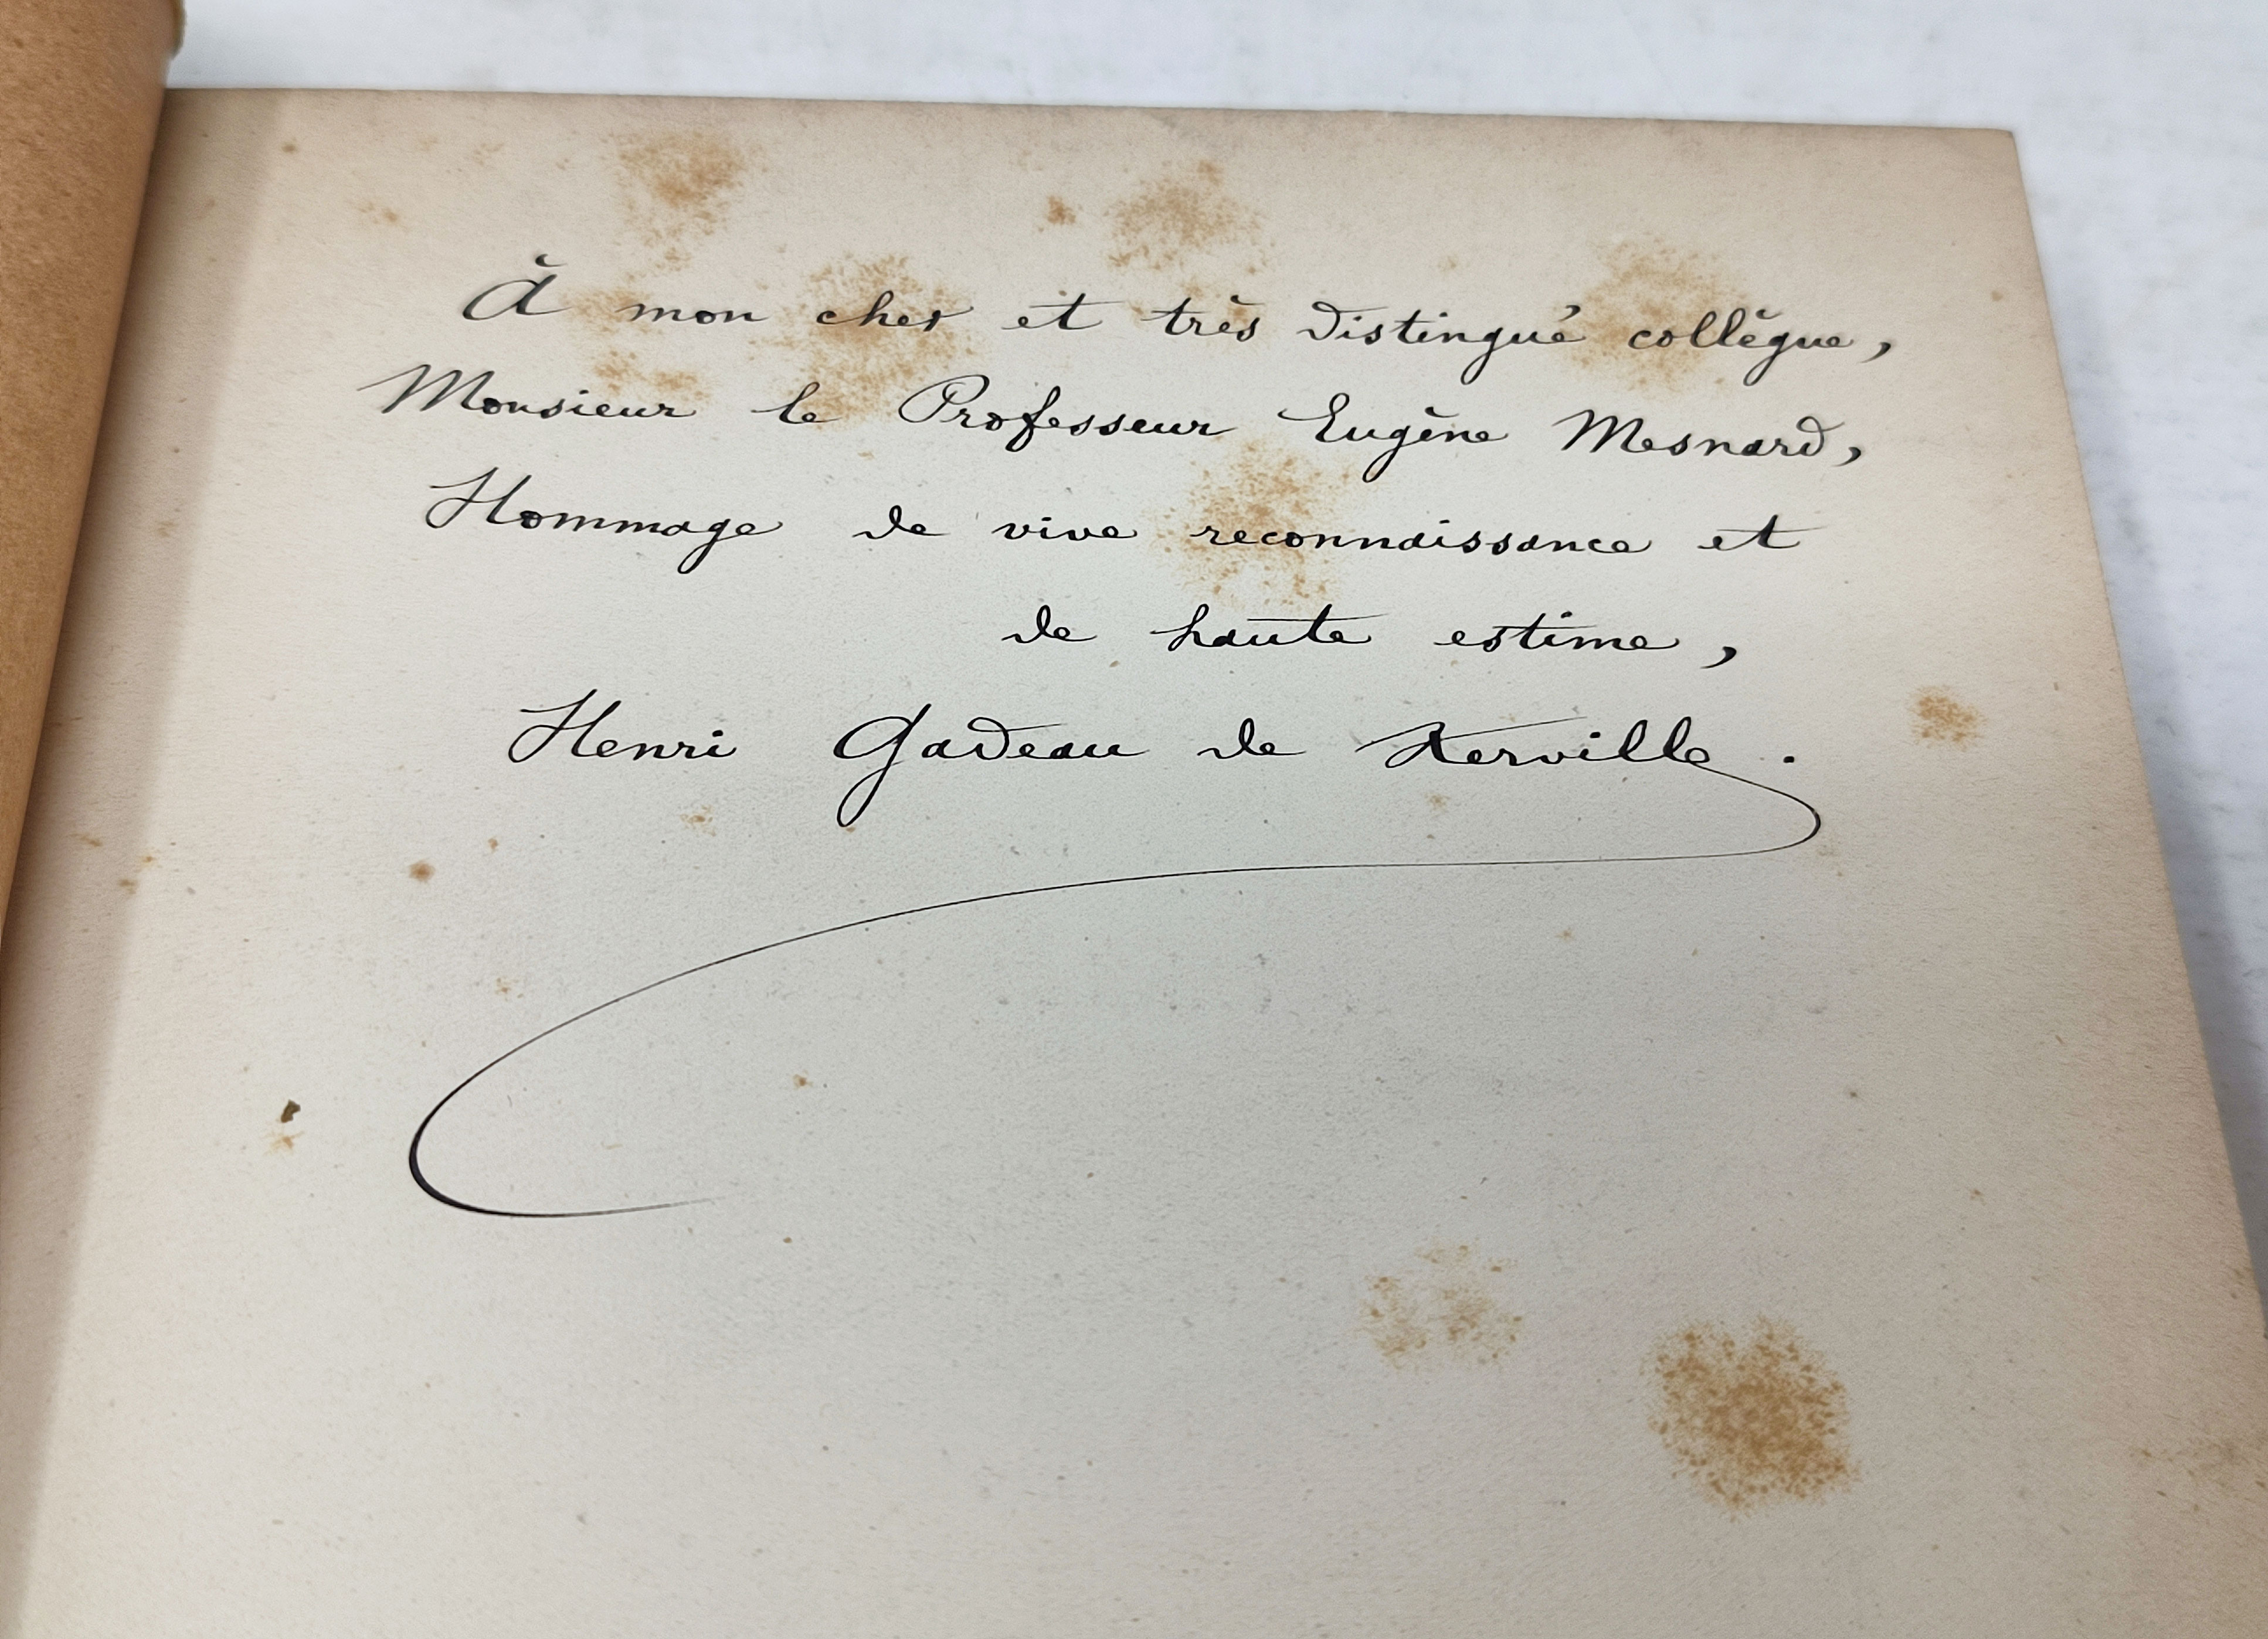 À mon cher et très distingué collègue,
Monsieur le Professeur Eugène Mesnard,
Hommage de vive reconnaissance et
de haute estime,
Henri Gadeau de Kerville.